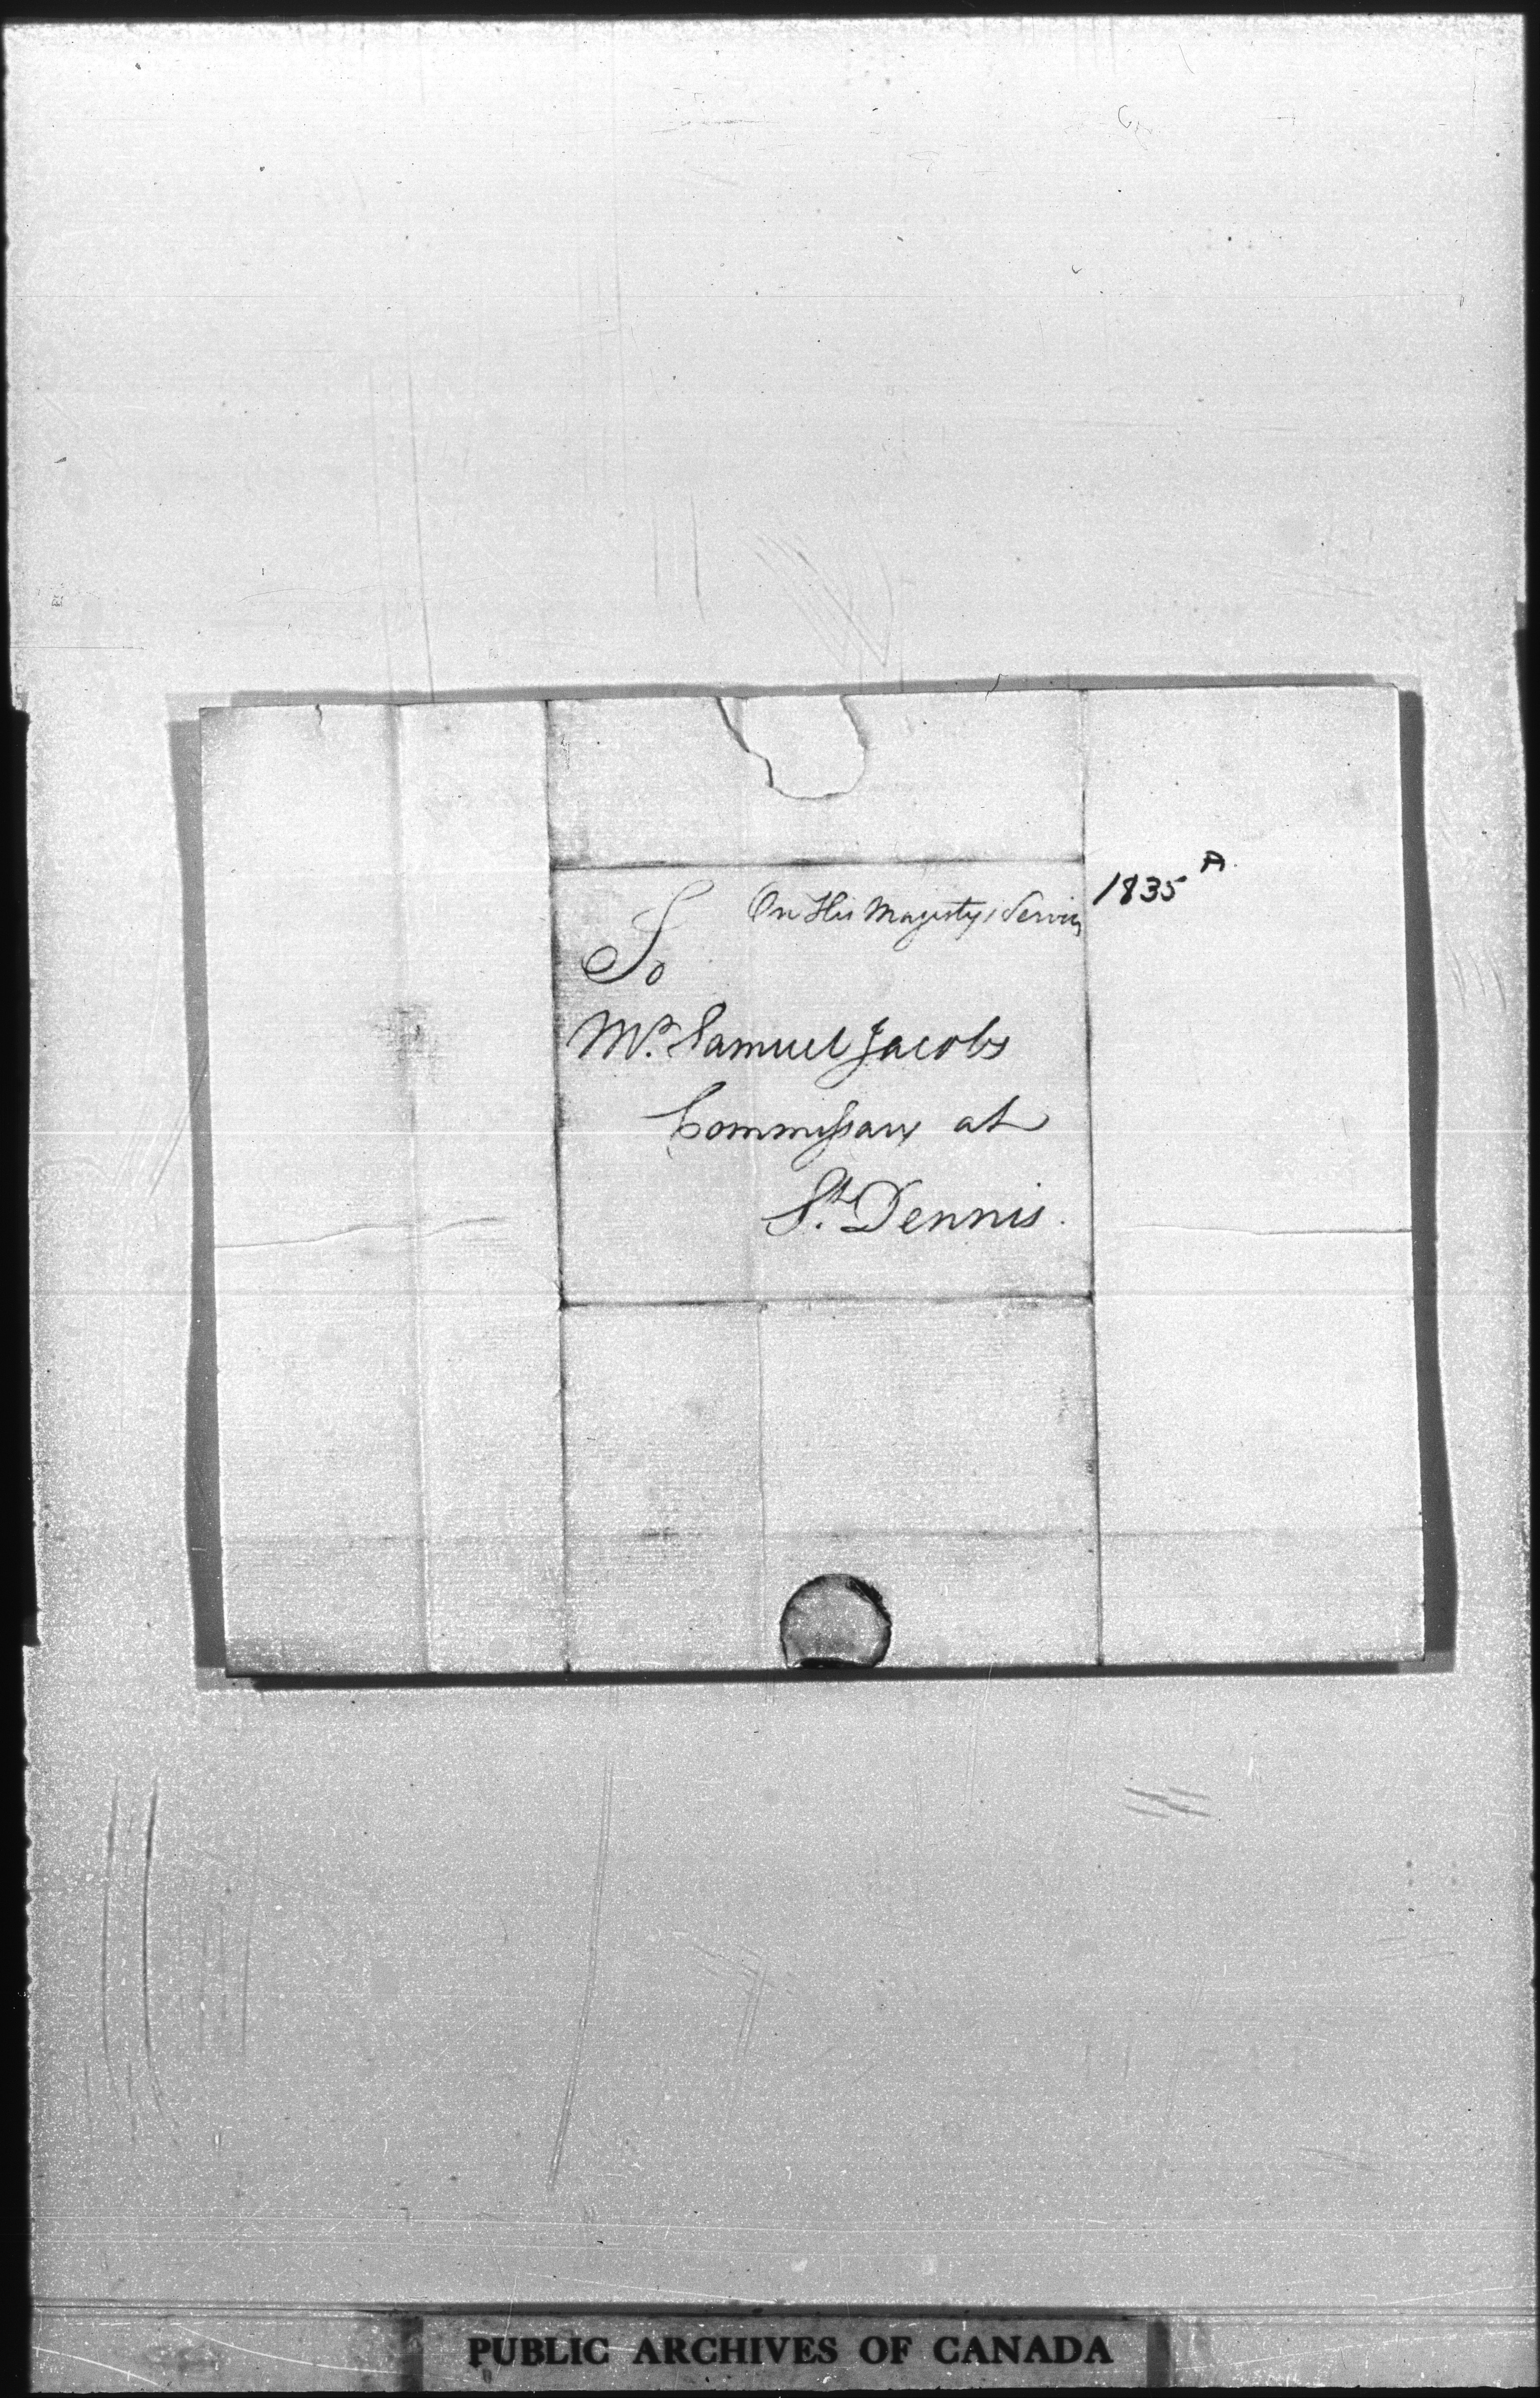 On His Majestys Service
1835 A.
To
Mr. Samuel Jacobs
Commissary at
St. Dennis.
PUBLIC ARCHIVES OF CANADA